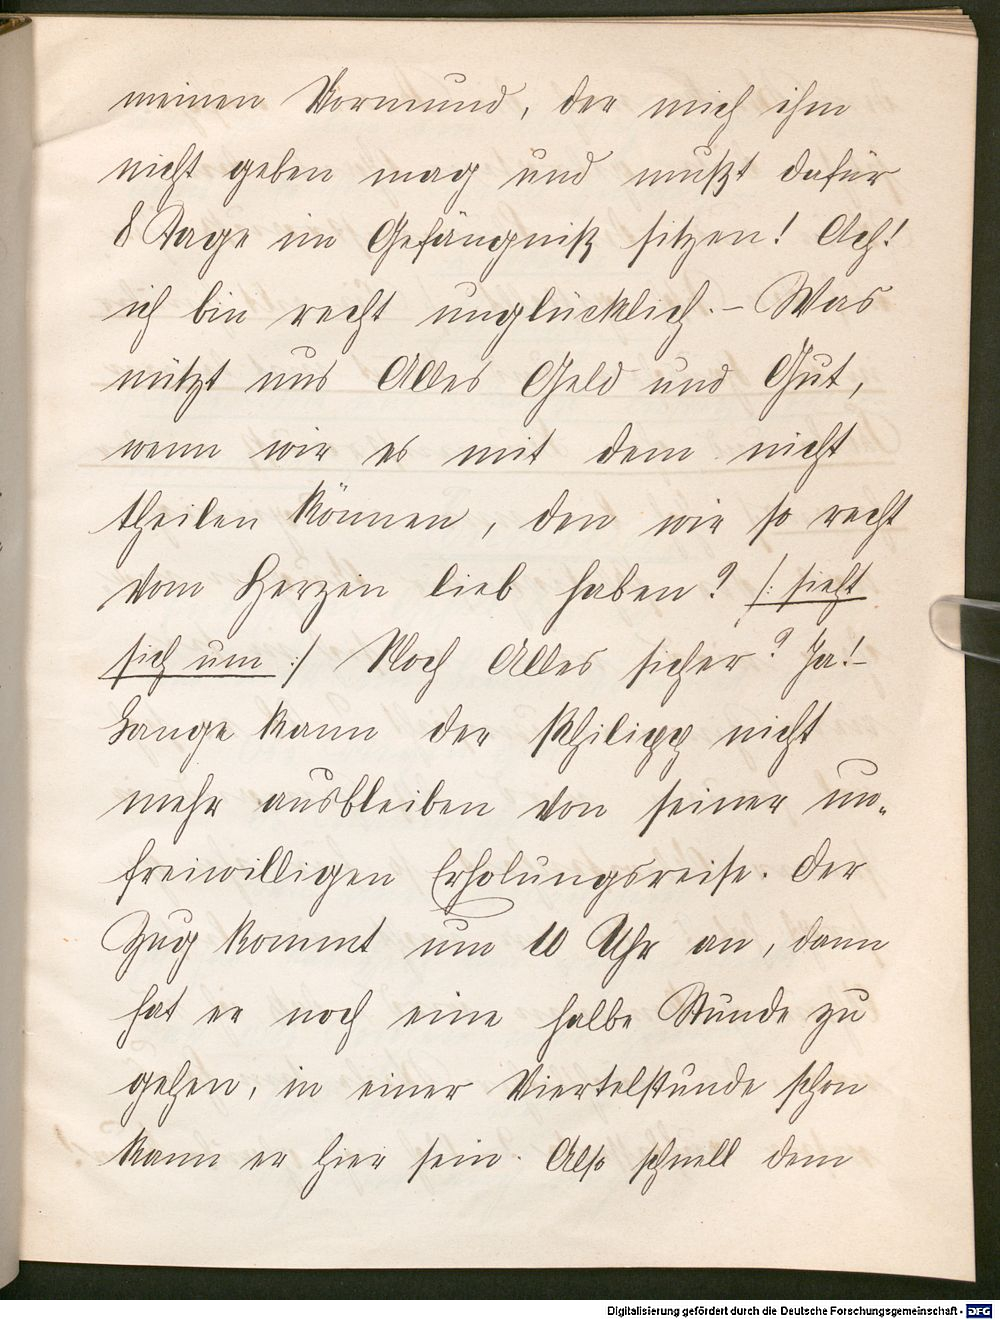 meinen Vormund, der mich ihm
nicht geben mag und mußt dafür
8 Tage im Gefängniß sitzen! Ach!
ich bin recht unglücklich. – Was
nützt uns Alles Geld und Gut,
wenn wir es mit dem nicht
theilen können, den wir so recht
vom Herzen lieb haben? /: sieht
sich um :/ Noch Alles sicher? Ja! –
Lange kann der Philipp nicht
mehr ausbleiben von seiner un-
freiwilligen Erholungsreise. Der
Zug kommt um 10 Uhr an, dann
hat er noch eine halbe Stunde zu
gehen, in einer Viertelstunde schon
kann er hier sein. Also schnell dem
Digitalisierung gefördert durch die Deutsche Forschungsgemeinschaft - DFG